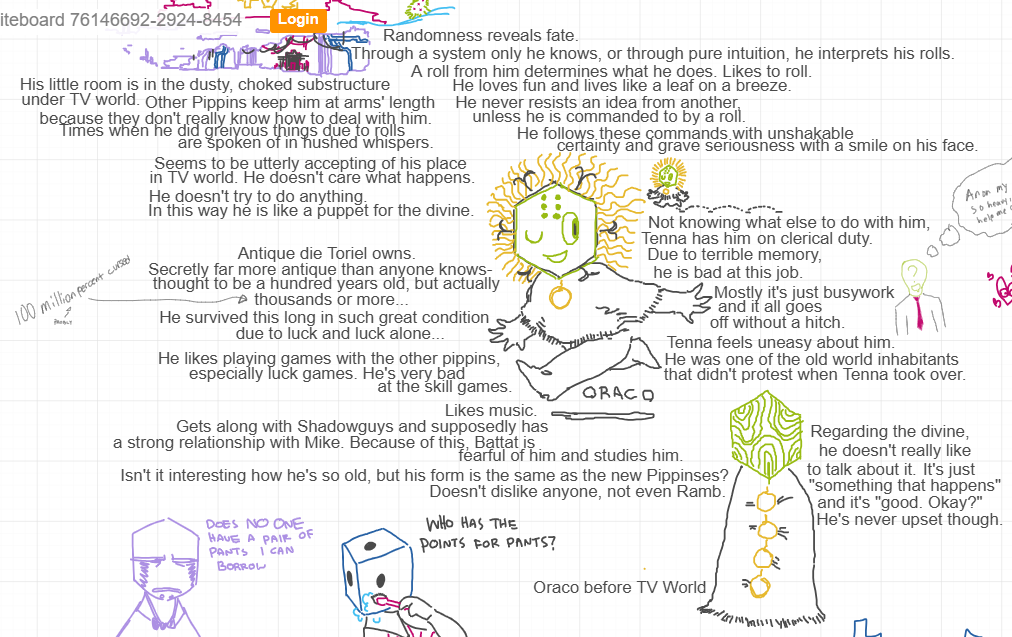 iteboard 76146692-2924-8454
Login
Randomness reveals fate.
Through a system only he knows, or through pure intuition, he interprets his rolls.
A roll from him determines what he does. Likes to roll.
He loves fun and lives like a leaf on a breeze.
He never resists an idea from another,
unless he is commanded to by a roll.
He follows these commands with unshakable
certainty and grave seriousness with a smile on his face.
His little room is in the dusty, choked substructure
under TV world. Other Pippins keep him at arms' length
because they don't really know how to deal with him.
Times when he did greivous things due to rolls
are spoken of in hushed whispers.
Seems to be utterly accepting of his place
in TV world. He doesn't care what happens.
He doesn't try to do anything.
In this way he is like a puppet for the divine.
Antique die Toriel owns.
Secretly far more antique than anyone knows-
thought to be a hundred years old, but actually
thousands or more...
100 million percent cursed
He survived this long in such great condition
due to luck and luck alone...
He likes playing games with the other pippins,
especially luck games. He's very bad
at the skill games.
ORACO
Not knowing what else to do with him,
Tenna has him on clerical duty.
Due to terrible memory,
he is bad at this job.
Mostly it's just busywork
and it all goes
off without a hitch.
Tenna feels uneasy about him.
He was one of the old world inhabitants
that didn't protest when Tenna took over.
?
Likes music.
Gets along with Shadowguys and supposedly has
a strong relationship with Mike. Because of this, Battat is
fearful of him and studies him.
Isn't it interesting how he's so old, but his form is the same as the new Pippinses?
Doesn't dislike anyone, not even Ramb.
Regarding the divine,
he doesn't really like
to talk about it. It's just
"something that happens"
and it's "good. Okay?"
He's never upset though.
Oraco before TV World
DOES NO ONE
HAVE A PAIR OF
PANTS I CAN
BORROW
WHO HAS THE
POINTS FOR PANTS?